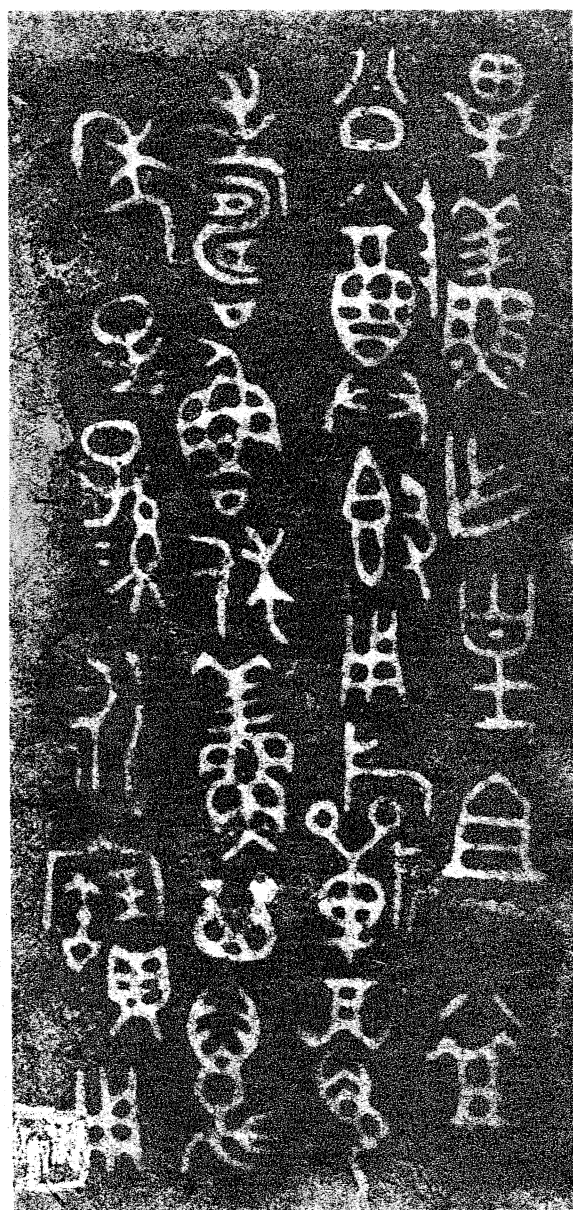 畢鮮乍皇且益
公尊𣪘用旂眉
壽魯休鮮其萬
年子子孫孫永寶用